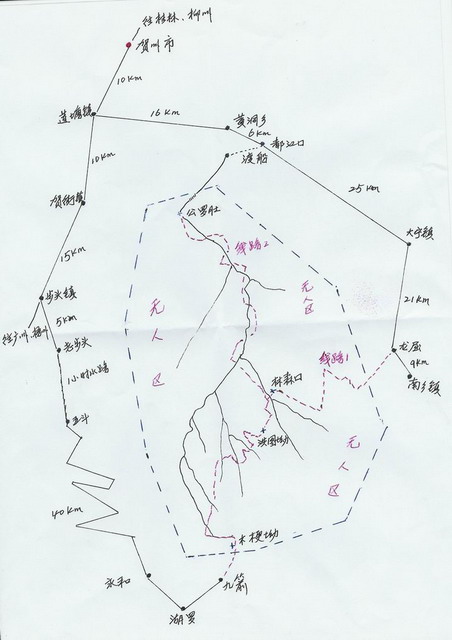 往桂林、柳州
贺州市
10KM
莲塘镇
16KM
黄洞乡
6KM
都江口
渡船
10KM
25KM
贺街镇
公罗肚
大宁镇
线路2
15KM
无人区
无人区
21KM
步头镇
5KM
老步头
线路1
龙屈
9KM
南乡镇
林森口
1小时水路
无人区
40KM
木梗坳
永和
九箭
湖罗